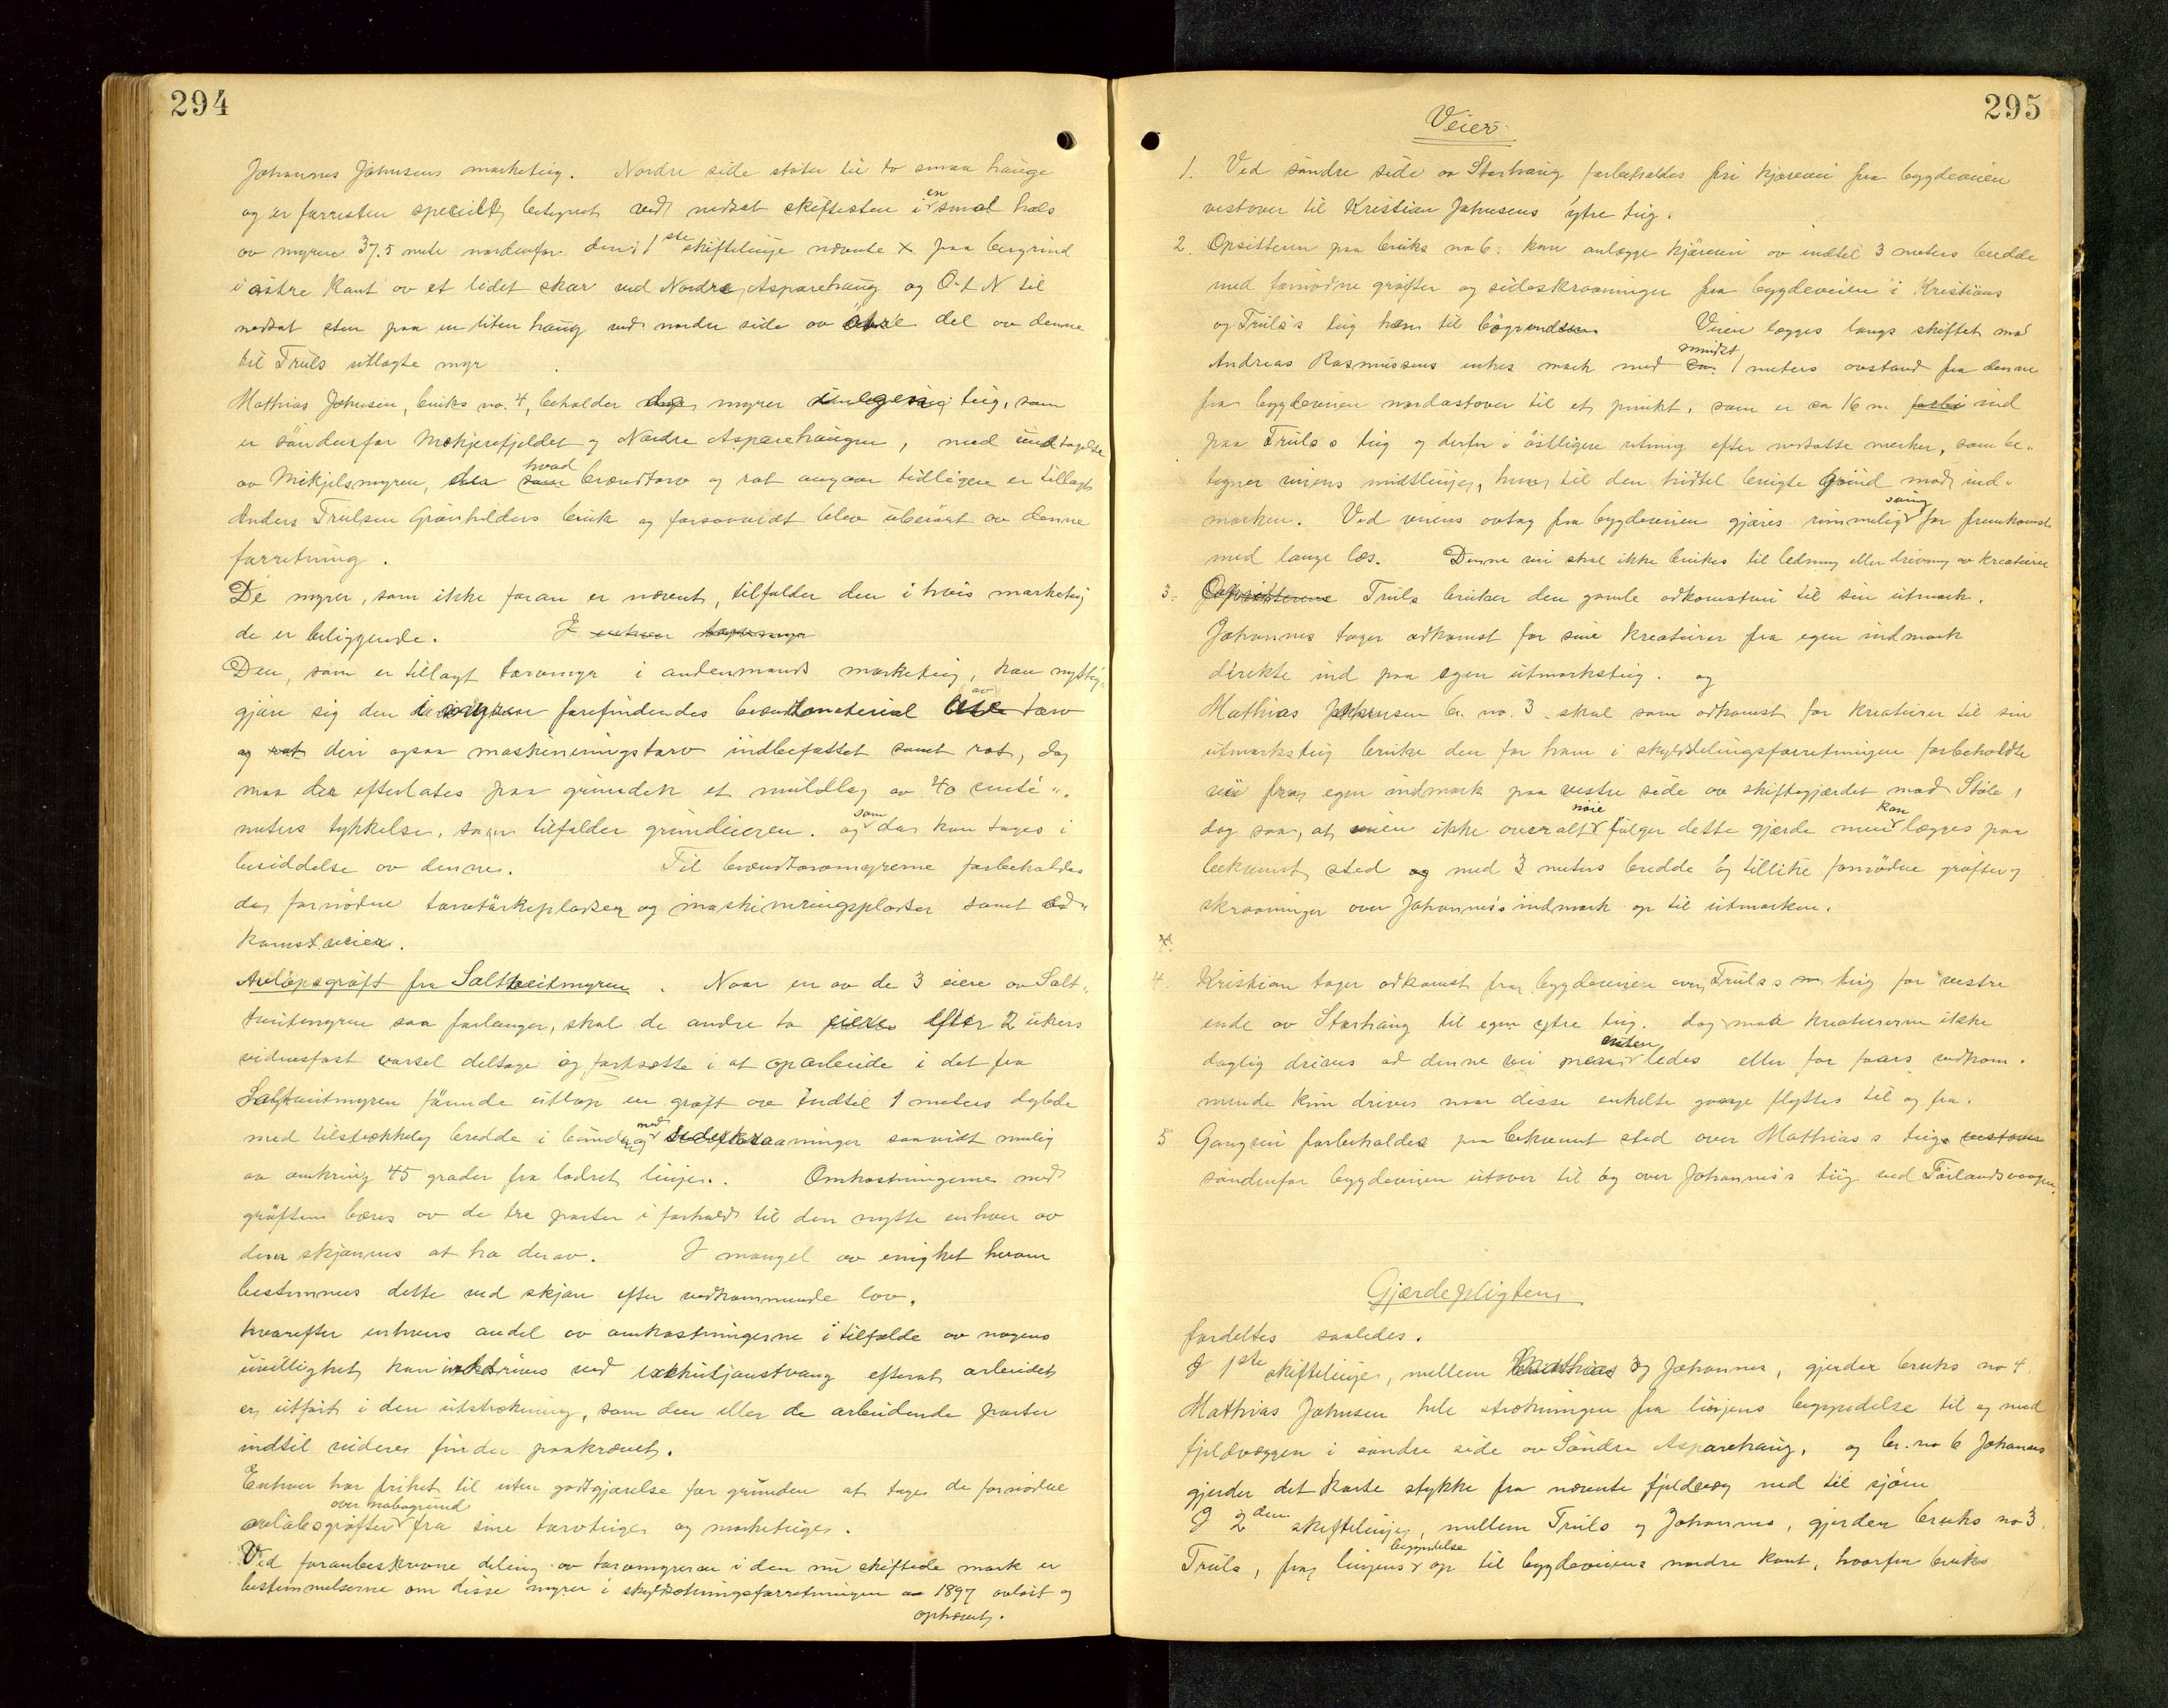 294
Johannes Johnsens marketeig. Nordre side støter til to smaa hauge
og er forresten specielt betegnet ved nedsat skiftesten i en smal hals
av myren 37.5 mete nordenfor den i 1ste skiftelinje nævnte x paa bergrind
i østre kant av et lidet skar ved Nordre Asparehaug og O-t N til
nedsat sten paa en liten haug ved nordre side av del av denne
til Truls utlagte myr
Mathias Johnsen, bruks no. 4, beholder myrer teig, som
er søndenfor Mikjersfjeldet og Nordre Asparehaugen, med undtagelse
av Mikjelsmyren, hvad brændtorv og rot angaar tidligere er tillagt
Anders Trulsen Grønhilders bruk og forsaavidt blev uberørt av denne
forretning.
De myrer, som ikke foran er nævnt, tilfalder den i hvis marketeig
de er beliggende. I enhver
Den, som er tillagt torvmyr i andenmands marketeig, kan nyttig-
gjøre sig den i myren forefindendes brændmaterial av torv
og rot deri ogsaa maskineringstorv indbefattet samt rot, dog
maa der efterlates paa grunden et muldlag av 40 centi-
meters tykkelse, som tilfalder grundeieren. og som da kan tages i
besiddelse av denne. Til brændtorvmyrerne forbeholdes
de fornødne torvetørkepladser og maskineringspladser samt ad-
komstveier.
Avløpsgrøft fra Salttveitmyren. Naar en av de 3 eiere av Salt-
tveitmyren saa forlanger, skal de andre to eiere efter 2 ukers
vidnesfast varsel deltage og fortsætte i at oparbeide i det fra
Salttveitmyren førende utløp en grøft av indtil 1 meters dybde
med tilstrækkelig bredde i bund og med sideskraaninger saavidt mulig
av omkring 45 grader fra lodret linje. Omkostningerne med
grøften bæres av de tre parter i forhold til den nytte enhver av
dem skjønnes at ha derav. I mangel av enighet herom
bestemmes dette ved skjøn efter vedkommende lov,
hvorefter enhvers andel av omkostningerne i tilfælde av nogens
uvillighet kan inddrives ved exekutjonstvang efterat arbeidet
er utført i den utstrækning, som den eller de arbeidende parter
indtil videre finder paakrævet.
Enhver har frihet til uten godtgjørelse for grunden at tage de fornødne
avløbsgrøfter over nabogrund fra sine torvteiger og marketeiger.
Ved foranbeskrevne deling av torvmyrerne i den nu skiftede mark er
bestemmelserne om disse myrer i skyldsætningsforretningen av 1897 avløst og
ophævet.
295
Veier
1. Ved søndre side av Storhaug forbeholdes fri kjørevei fra bygdeveien
vestover til Kristian Johnsens ytre teig.
2. Opsitteren paa bruks no 6. kan anlægge kjørevei av indtil 3 meters bredde
med fornødne grøfter og sideskraaninger fra bygdeveien i Kristians
og Truls's teig hen til bøgrunden. Veien lægges langs skiftet med
Andreas Rasmussens enkes mark med mindst 1 meters avstand fra denne
fra bygdeveien nordøstover til et punkt, som er ca 16 m forbi ind
paa Truls's teig og derfra i østligere retning efter nedsatte merker, som be-
tegner veiens midtlinje, hen til den hidtil brugte grind mod ind-
marken. Ved veiens avtag fra bygdeveien gjøres rimmelig sving for fremkomst
med lange læs. Denne vei skal ikke brukes til ledning eller drivning av kreaturer
3. Opsitterne Truls bruker den gamle adkomstvei til sin utmark.
Johannes tager adkomst for sine kreaturer fra egen indmark
direkte ind paa egen utmarksteig. og
Mathias Johnsen br. no. 3 skal som adkomst for kreaturer til sin
utmarksteig bruke den for ham i skylddelingsforretningen forbeholdte
vei fra egen indmark paa vestre side av skiftegjærdet mod Ståle,
dog saa, at veien ikke overalt nøie følger dette gjærde men kan lægges paa
bekvemt sted og med 3 meters bredde og tillike fornødne grøfter og
skraaninger over Johannes's indmark op til utmarken.
4. Kristian tager adkomst fra bygdeveien over Truls's teig for vestre
ende av Storhaug til egen ytre teig. dog maa kreaturerne ikke
daglig drives ad denne vei men enten ledes eller for faars vedkom-
mende kun drives naar disse enkelte gange flyttes til og fra.
5 Gangvei forbeholdes paa bekvemt sted over Mathias's teig vestover
søndenfor bygdeveien utover til og over Johannes's teig ved Førlandsvaagen.
Gjærdepligten
fordeltes saaledes.
I 1ste skiftelinje, mellem Mathias og Johannes, gjerder bruks no 4
Mathias Johnsen hele strækningen fra linjens begyndelse til og med
fjeldvæggen i søndre side av Søndre Asparehaug, og br. no 6 Johannes
gjerder det korte stykke fra nævnte fjeldvæg ned til sjøen
I 2den skiftelinje, mellem Truls og Johannes, gjerder bruks no 3.
Truls, fra linjens begyndelse op til bygdeveiens nordre kant, hvorfra bruks